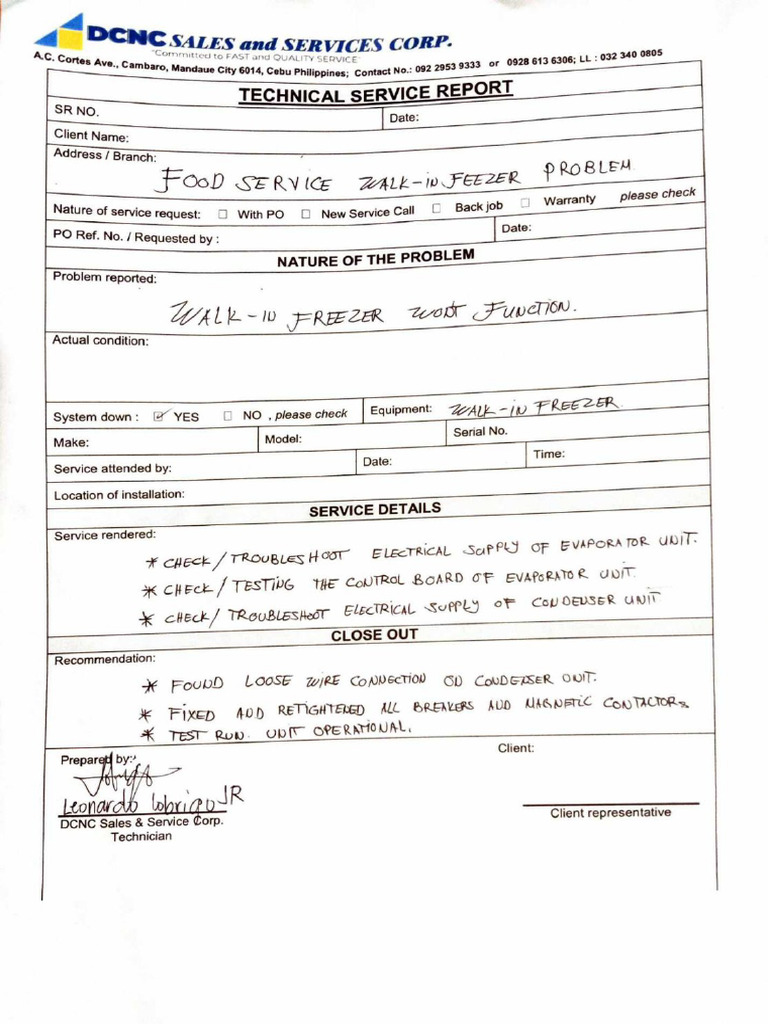 DCNC SALES and SERVICES CORP.
"Committed to FAST and QUALITY SERVICE"
A.C. Cortes Ave., Cambaro, Mandaue City 6014, Cebu Philippines; Contact No.: 092 2953 9333 or 0928 613 6306; LL : 032 340 0805
TECHNICAL SERVICE REPORT
SR NO. Date:
Client Name:
Address / Branch:
FOOD SERVICE WALK-IN FEEZER PROBLEM
Nature of service request: ☐ With PO ☐ New Service Call ☐ Back job ☐ Warranty please check
PO Ref. No. / Requested by : Date:
NATURE OF THE PROBLEM
Problem reported:
WALK-IN FREEZER WONT FUNCTION.
Actual condition:
System down : ☑ YES ☐ NO , please check Equipment: WALK-IN FREEZER
Make: Model: Serial No.
Service attended by: Date: Time:
Location of installation:
SERVICE DETAILS
Service rendered:
* CHECK/TROUBLESHOOT ELECTRICAL SUPPLY OF EVAPORATOR UNIT.
* CHECK/TESTING THE CONTROL BOARD OF EVAPORATOR UNIT.
* CHECK/TROUBLESHOOT ELECTRICAL SUPPLY OF CONDENSER UNIT
CLOSE OUT
Recommendation:
* FOUND LOOSE WIRE CONNECTION ON CONDENSER UNIT.
* FIXED AND RETIGHTENED ALL BREAKERS AND MAGNETIC CONTACTORS
* TEST RUN. UNIT OPERATIONAL.
Prepared by: Client:
Leonardo Lobrigo JR
DCNC Sales & Service Corp. Client representative
Technician